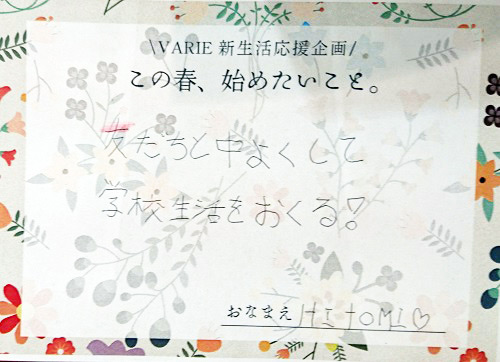 \VARIE 新生活応援企画/
この春、始めたいこと。
友たちと中よくして
学校生活をおくる!
おなまえ HITOMI♡